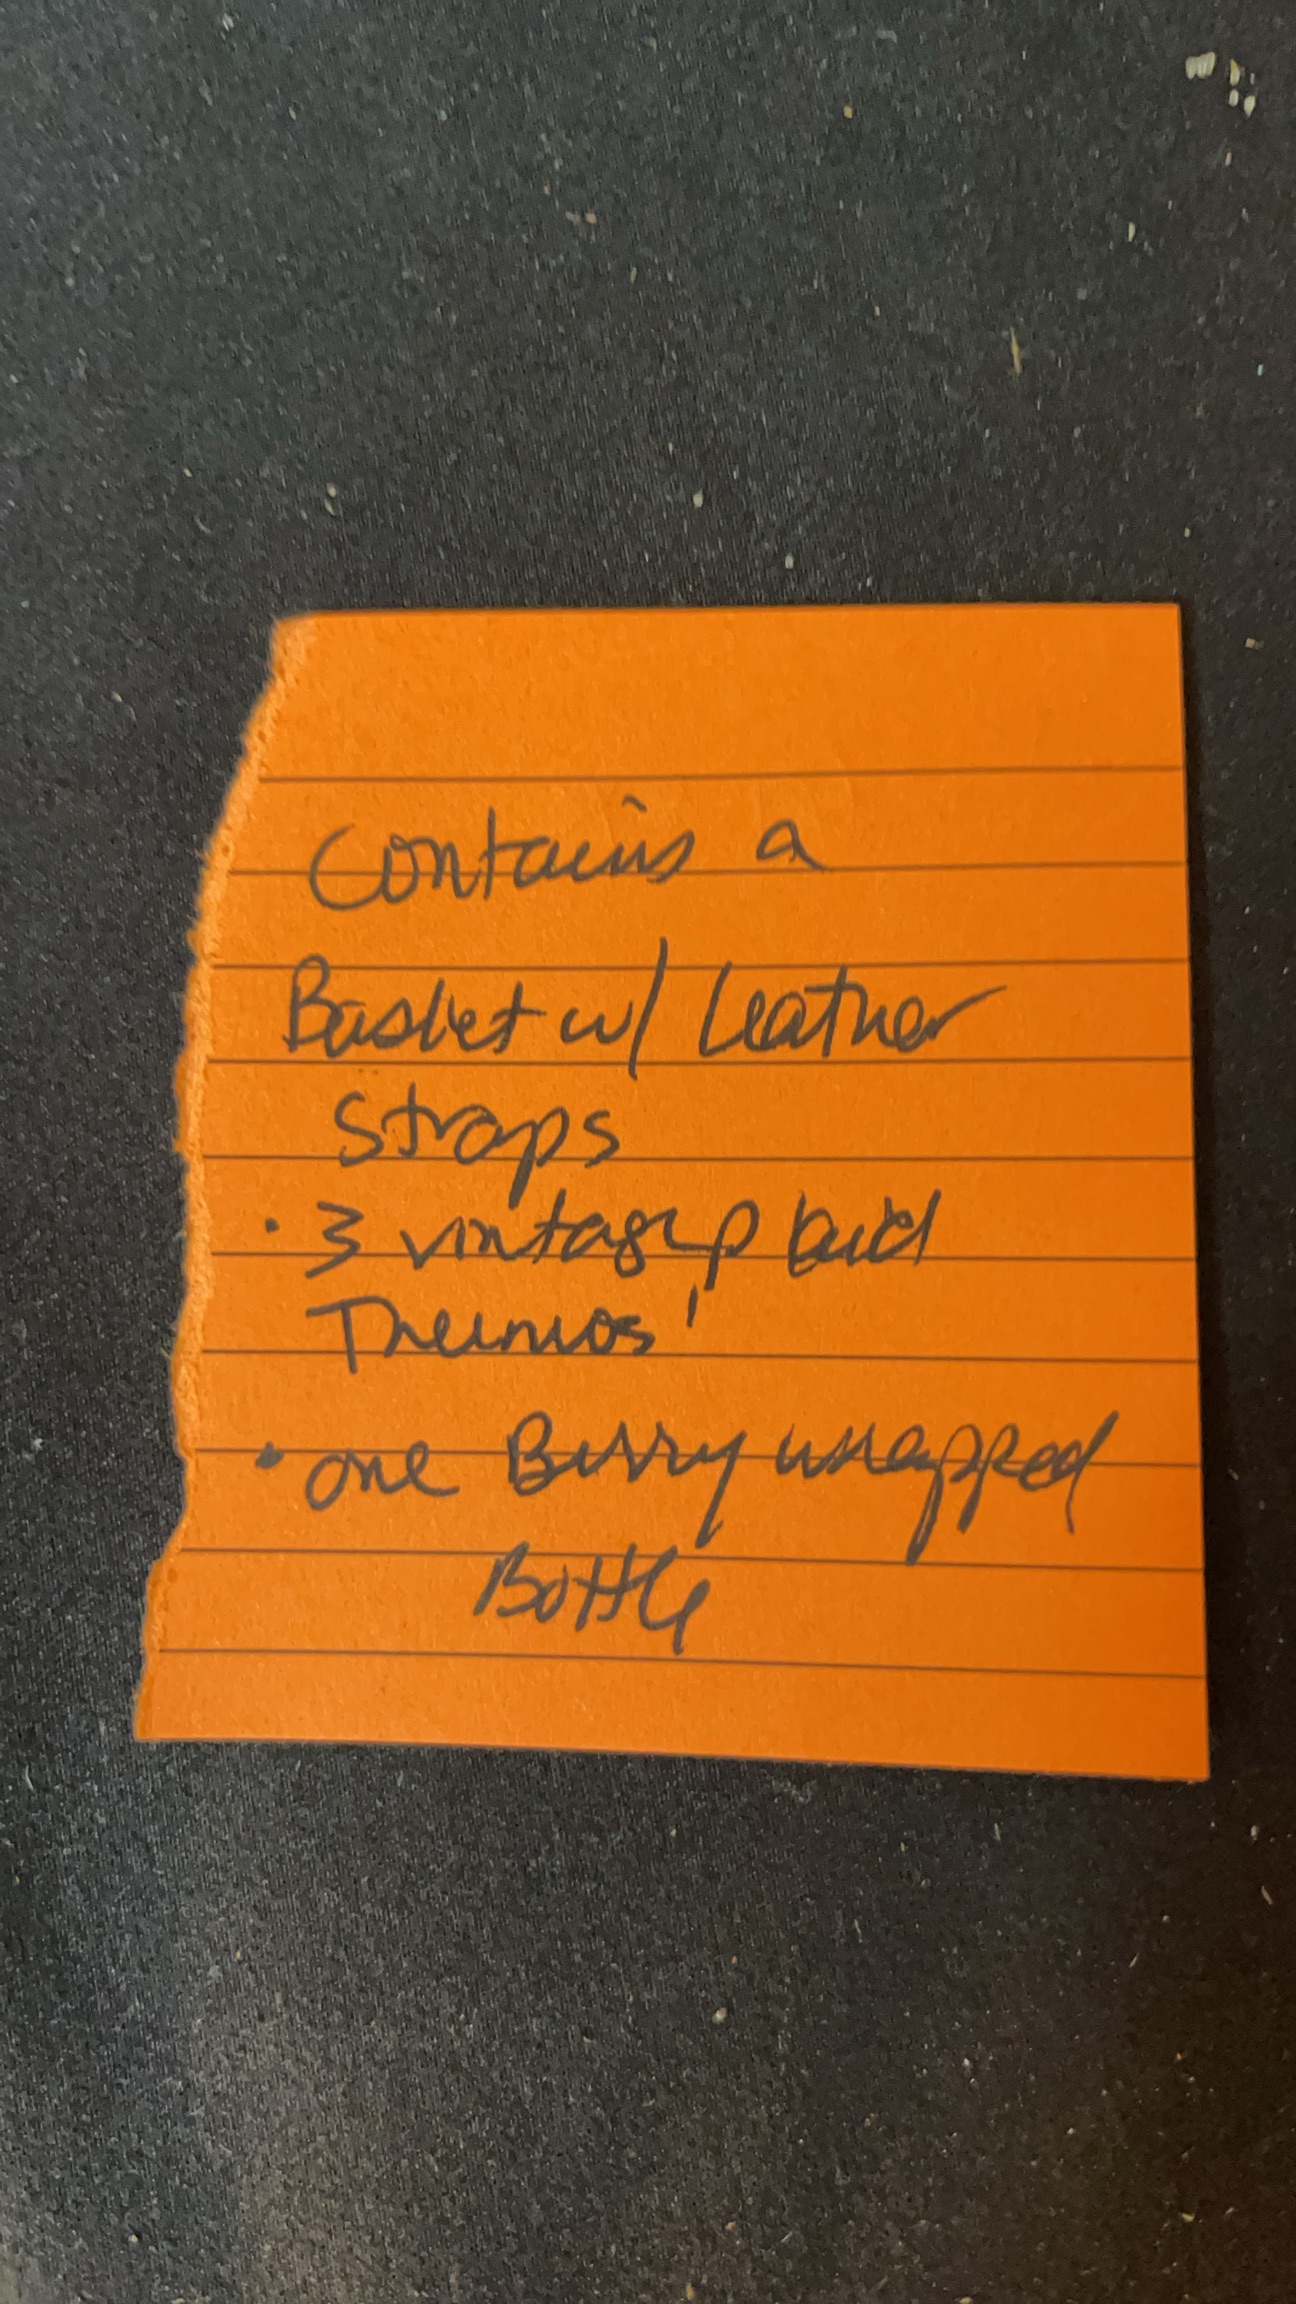 Contains a
Basket w/ Leather
Straps
· 3 vintage plaid
Thermos'
· one Berry wrapped
Bottle